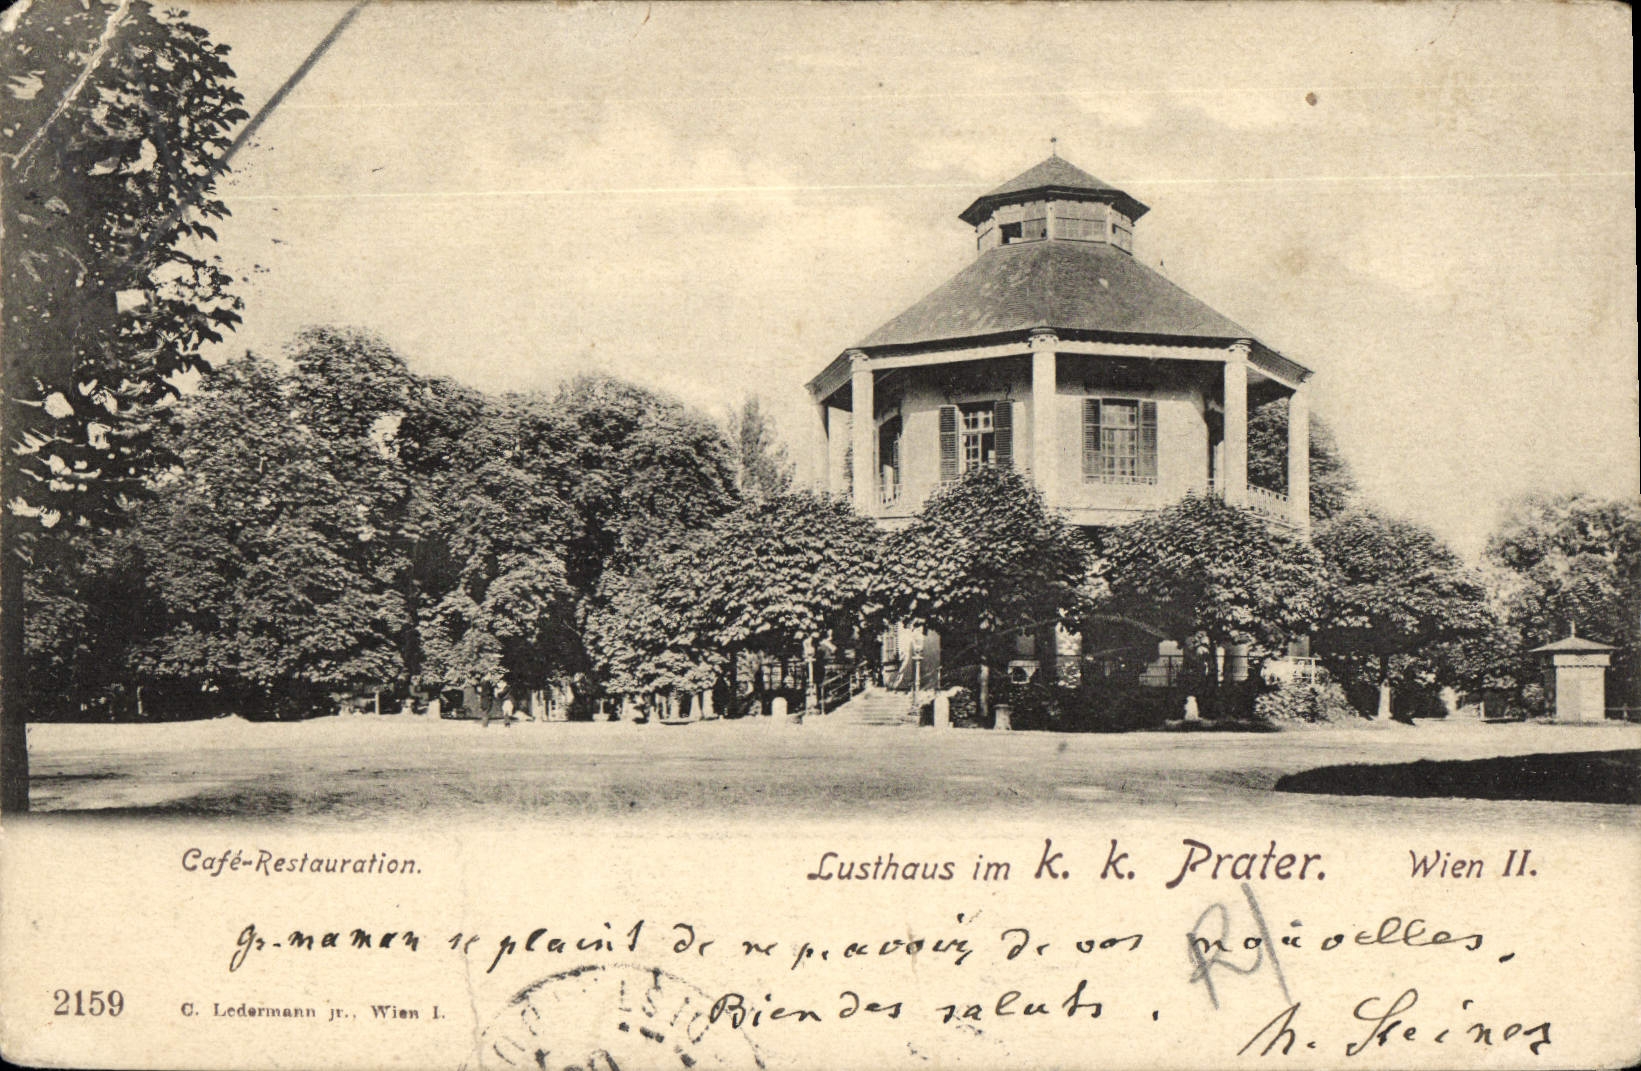 Café-Restauration.
Lusthaus im k. k. Prater. Wien II.
Gr.-maman se plaint de ne p. avoir de vos nouvelles.
Bien des saluts.
2159 C. Ledermann jr., Wien I.